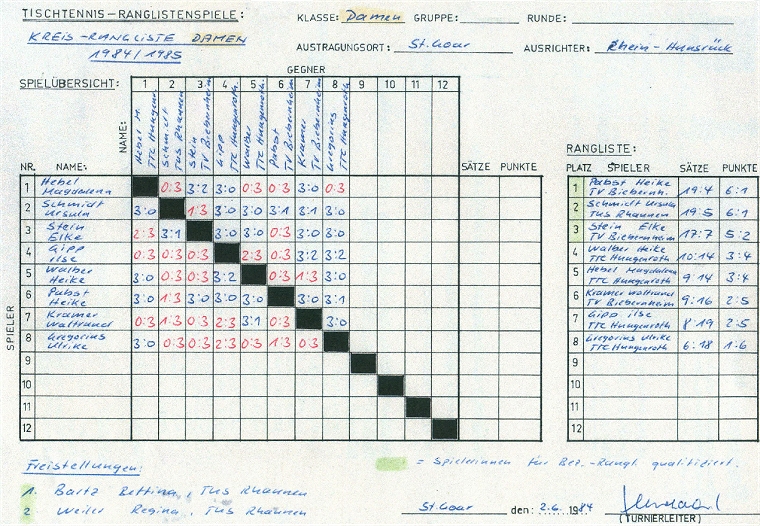 TISCHTENNIS-RANGLISTENSPIELE:
KREIS-RANGLISTE DAMEN
1984/1985
KLASSE: Damen GRUPPE: RUNDE:
AUSTRAGUNGSORT: St. Goar AUSRICHTER: Rhein-Hunsrück
SPIELÜBERSICHT:
GEGNER
1 2 3 4 5 6 7 8 9 10 11 12
NAME:
Hebel M. TTC Hungenr.
Schmidt TuS Rhaunen
Stein TV Biebernheim
Gipp TTC Hungenroth
Walber TTC Hungenroth
Pabst TV Biebernheim
Kramer TV Biebernheim
Gregorius TTC Hungenroth
NR. NAME: SÄTZE PUNKTE
SPIELER
1 Hebel Magdalena 0:3 3:2 3:0 0:3 0:3 3:0 0:3
2 Schmidt Ursula 3:0 1:3 3:0 3:0 3:1 3:1 3:0
3 Stein Elke 2:3 3:1 3:0 3:0 0:3 3:0 3:0
4 Gipp Ilse 0:3 0:3 0:3 2:3 0:3 3:2 3:2
5 Walber Heike 3:0 0:3 0:3 3:2 0:3 1:3 3:0
6 Pabst Heike 3:0 1:3 3:0 3:0 3:0 3:0 3:1
7 Kramer Waltraud 0:3 1:3 0:3 2:3 3:1 0:3 3:0
8 Gregorius Ulrike 3:0 0:3 0:3 2:3 0:3 1:3 0:3
9
10
11
12
RANGLISTE:
PLATZ SPIELER SÄTZE PUNKTE
1 Pabst Heike TV Biebernh. 19:4 6:1
2 Schmidt Ursula TuS Rhaunen 19:5 6:1
3 Stein Elke TV Biebernheim 17:7 5:2
4 Walber Heike TTC Hungenroth 10:14 3:4
5 Hebel Magdalena TTC Hungenroth 9:14 3:4
6 Kramer Waltraud TV Biebernheim 9:16 2:5
7 Gipp Ilse TTC Hungenroth 8:19 2:5
8 Gregorius Ulrike TTC Hungenroth 6:18 1:6
9
10
11
12
Freistellungen:
1. Bartz Bettina, TuS Rhaunen
2 Weiler Regina, TuS Rhaunen
= Spielerinnen für Bez.-Rangl. qualifiziert.
St. Goar den: 2.6. 1984
(TURNIERLEITER)